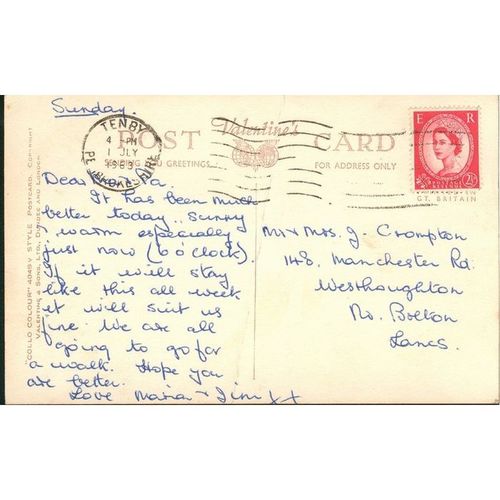 Sunday.
TENBY
4 PM
1 JLY
1963
PEMBROKESHIRE
POST Valentine's CARD
SENDING YOU GREETINGS. FOR ADDRESS ONLY
E R
POSTAGE REVENUE
2½D
GT. BRITAIN
Dear
It has been much
better today. sunny
& warm especially
just now (6 o'clock).
If it will stay
like this all week
it will suit us
fine. We are all
going to go for
a walk. Hope you
are better.
Love Maria & Jim XX
Mr & Mrs. J. Crompton
148, Manchester Rd.
Westhoughton
Nr. Bolton
Lancs.
"COLLO COLOUR" 4049V STYLE POSTCARD. COPYRIGHT
VALENTINE & SONS, LTD., DUNDEE AND LONDON